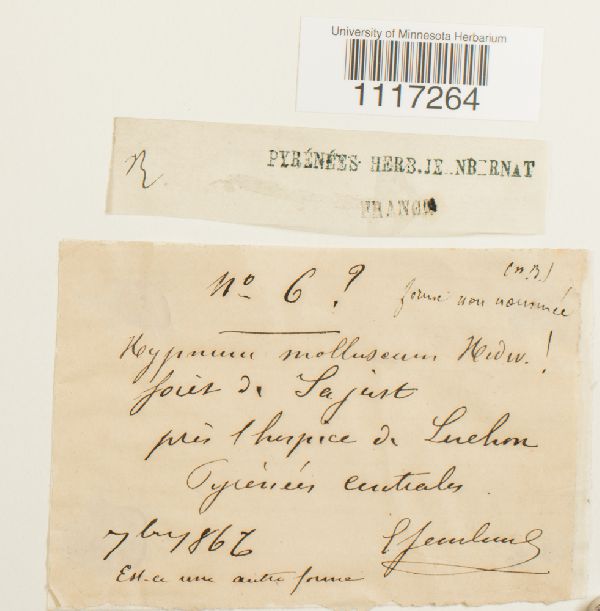 University of Minnesota Herbarium
1117264
PYRÉNÉES HERB.JE NB RNAT
FRANCE
(n B)
No 6 ? forme non nommée
Hypnum molluscum Hedw. !
forêt de Sajust
près l'hospice de Luchon
Pyrénées centrales
7bre 186
Est-ce une autre forme